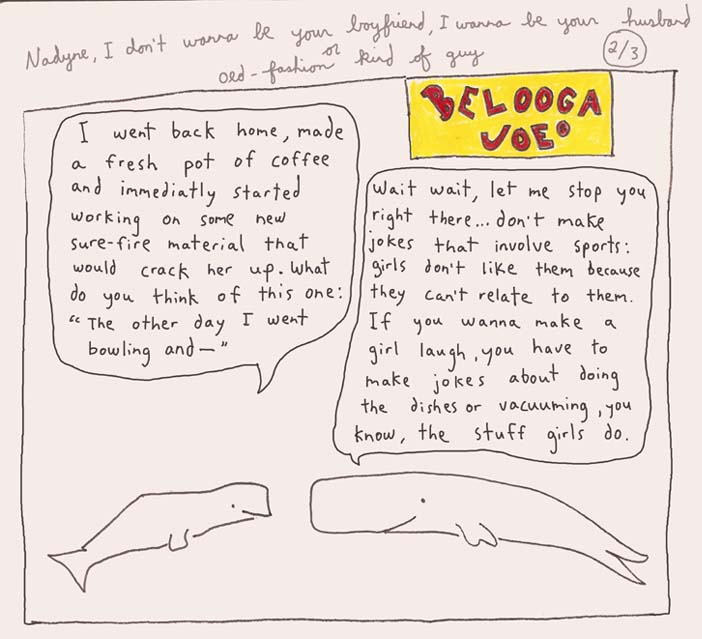 Nadyne, I don't wanna be your boyfriend, I wanna be your husband
or
old-fashion kind of guy
2/3
BELOOGA
JOE
I went back home, made
a fresh pot of coffee
and immediatly started
working on some new
sure-fire material that
would crack her up. What
do you think of this one:
"The other day I went
bowling and—"
Wait wait, let me stop you
right there... don't make
jokes that involve sports:
girls don't like them because
they can't relate to them.
If you wanna make a
girl laugh, you have to
make jokes about doing
the dishes or vacuuming, you
know, the stuff girls do.